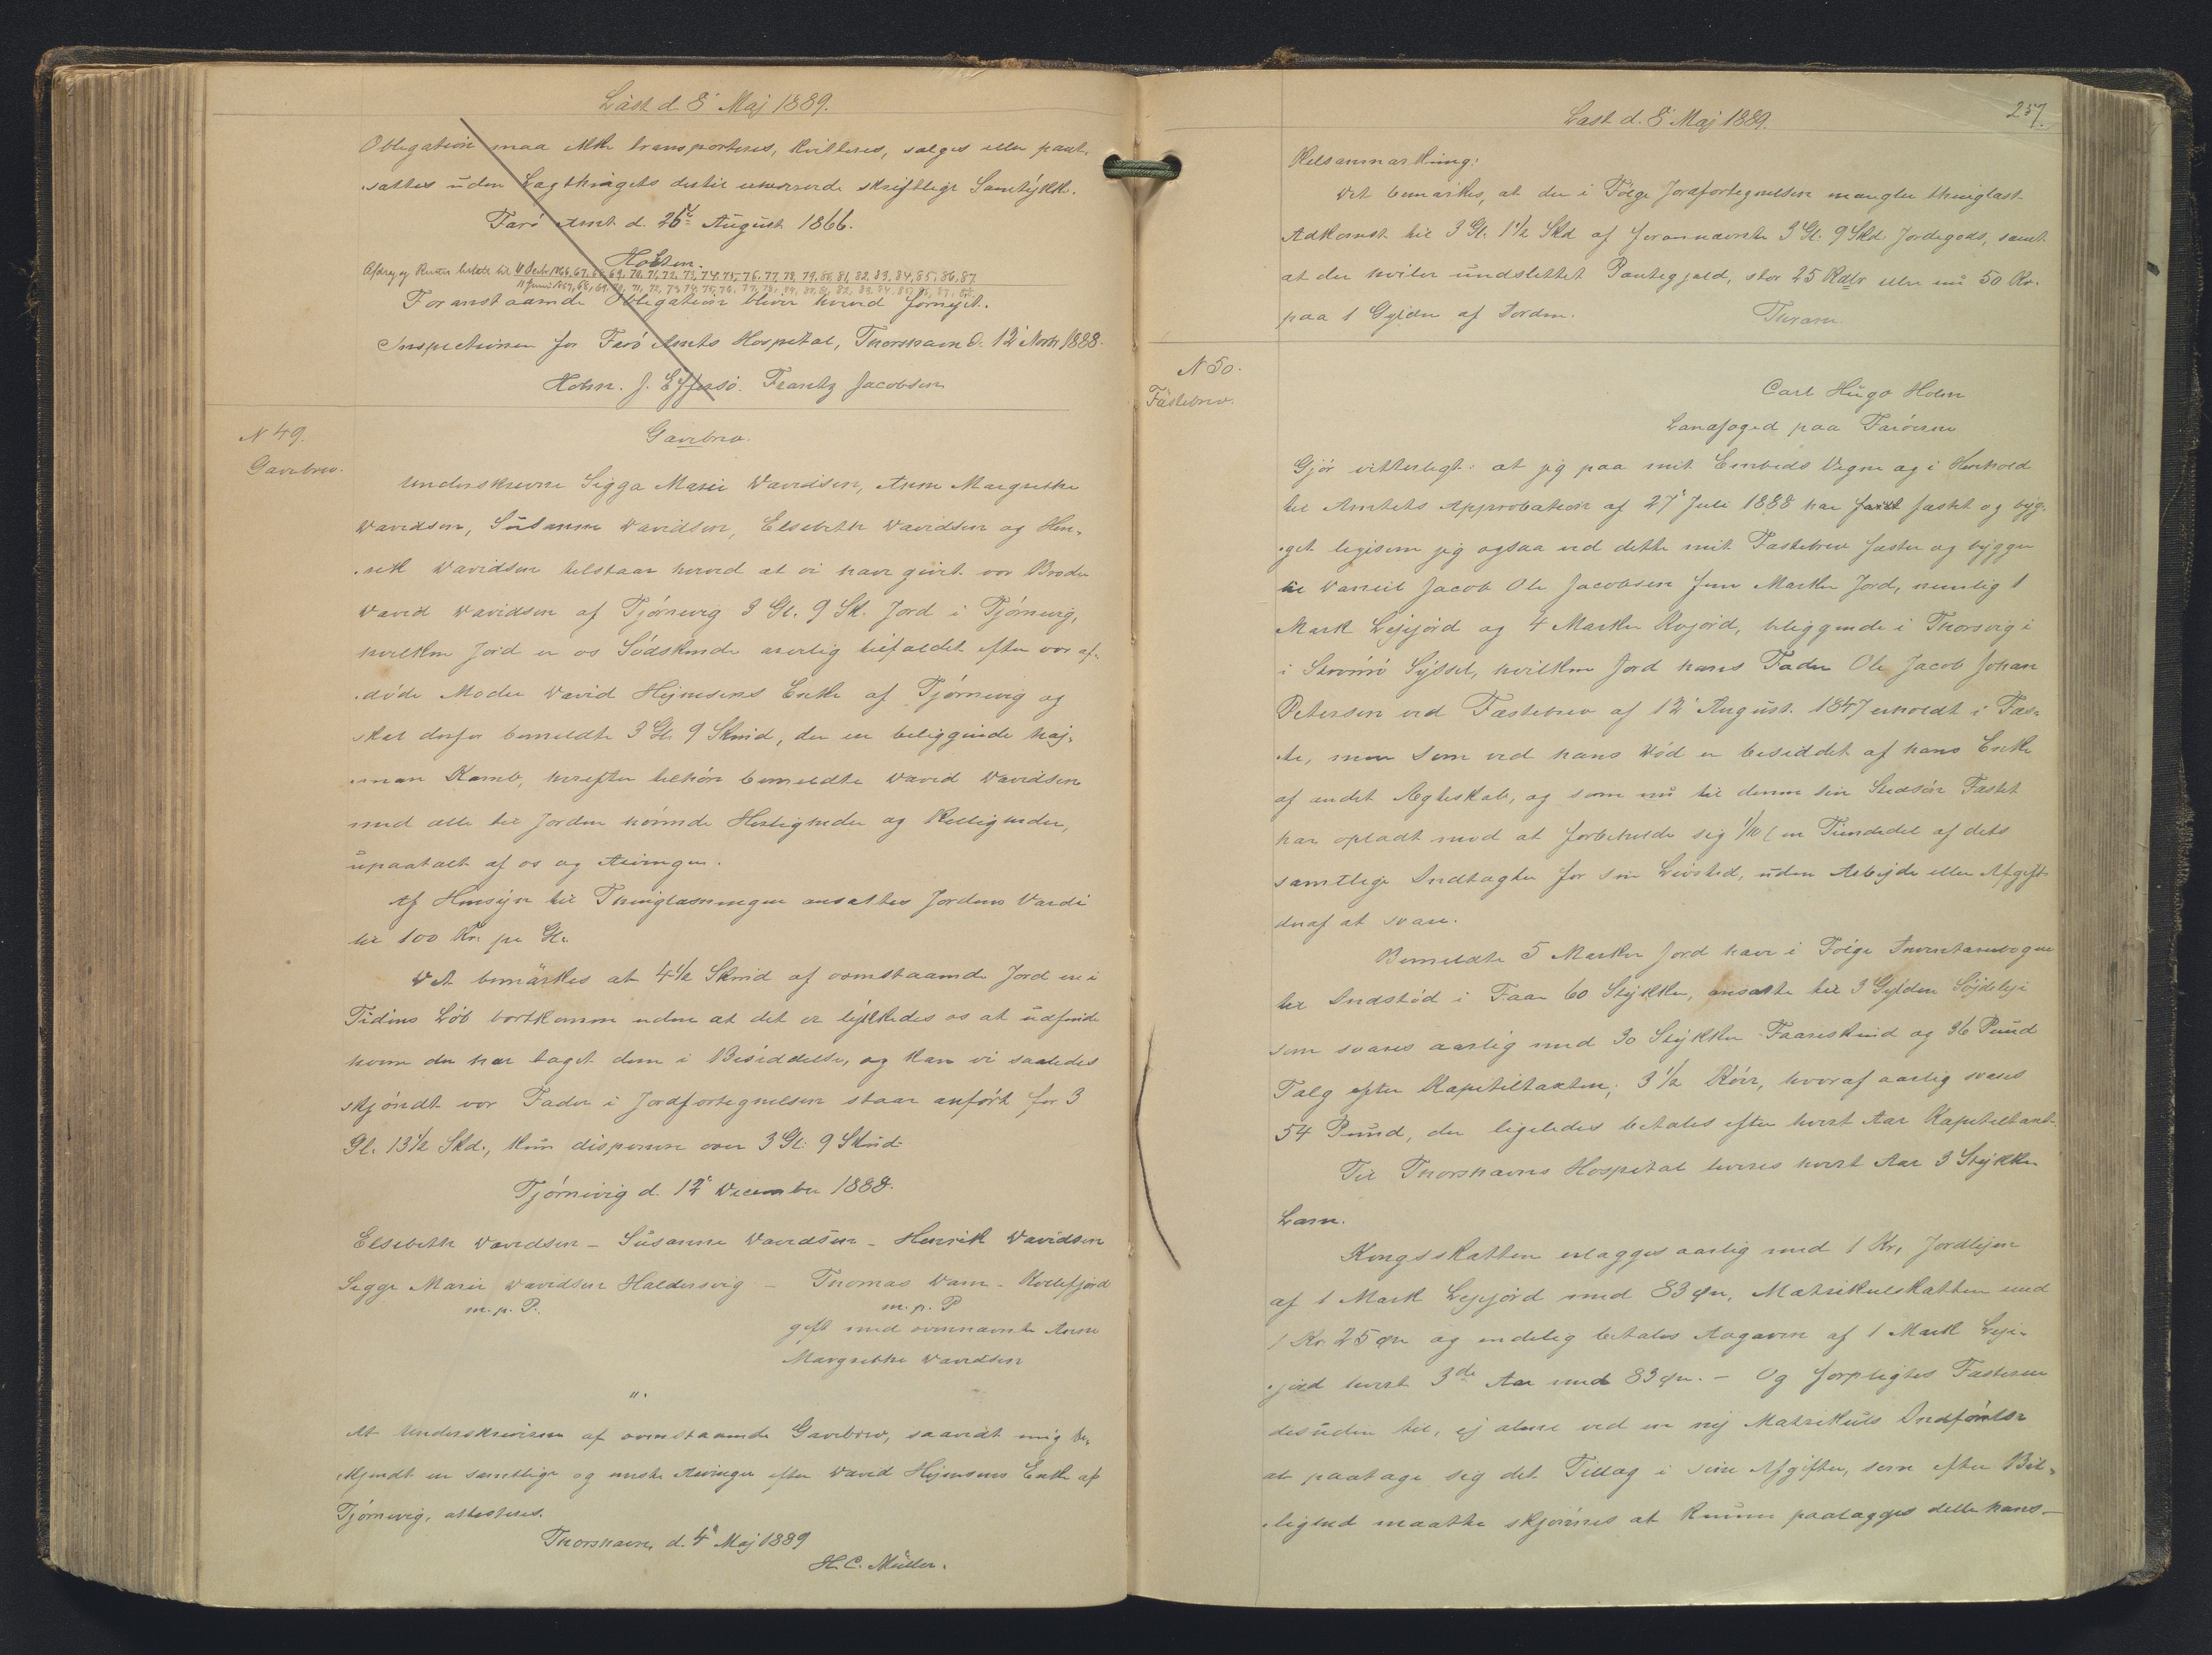 Läst d. 8' Maj 1889.
Obligation maa ikke transporteres, kvitteres, sælges eller pant-
sættes uden Lagthingets dertil erhvervede skriftlige Samtykke.
Farö Amt d. 26' August 1866.
Holten.
Afdrag og Renter betalte til 11 Decbr 1866, 67, 68, 69, 70, 71, 72, 73, 74, 75, 76, 77, 78, 79, 80, 81, 82, 83, 84, 85, 86, 87
11 Juni 1867, 68, 69, 70, 71, 72, 73, 74, 75, 76, 77, 78, 79, 80, 81, 82, 83, 84, 85, 86, 87, 88.
Foranstaaende Obligation bliver herved fornyet.
Inspectionen for Farö Amts Hospital, Thorshavn d. 12' Novbr 1888.
Holm. J. Effersö. Frantz Jacobsen
N 49.
Gavebrev.
Gavebrev.
Underskrevne Sigga Marie Davidsen, Anne Margrethe
Davidsen, Susanne Davidsen, Elsebeth Davidsen og Hen-
rik Davidsen tilstaar herved at vi have givet vor Broder
David Davidsen af Tjörnevig 3 Gl. 9 Sk. Jord i Tjörnevig,
hvilken Jord er os Södskende arvelig tilfaldet efter vor af-
döde Moder David Hejnesens Enke af Tjörnevig og
skal derfor bemeldte 3 Gl. 9 Skind, der er beliggende haj-
man Kamb, herefter tilhöre bemeldte David Davidsen
med alle til Jorden hörende Herligheder og Rettigheder,
upaatalt af os og Arvinger.
Af Hensyn til Thinglæsningen ansættes Jordens Værdi
til 100 Kr. pr Gl.
Det bemärkes at 4½ Skind af ovenstaaende Jord er i
Tidens Löb bortkommen uden at det er lykkedes os at udfinde
hvem der har taget dem i Besiddelse, og kan vi saaledes
skjöndt vor Fader i Jordfortegnelsen staar anfört for 3
Gl. 13½ Skd., kun disponere over 3 Gl. 9 Skind.
Tjörnevig d. 12' December 1888.
Elsebeth Davidsen - Susanne Davidsen - Henrik Davidsen
Sigge Marie Davidsen Haldersvig - Thomas Dam - Kollefjord
m. p. P. m. p. P
gift med ovennævnte Anne
Margrethe Davidsen
"
At Underskriverne af ovenstaaende Gavebrev, saavidt mig be-
kjendt er samtlige og eneste Arvinger efter David Hejnesens Enke af
Tjörnevig, attesteres.
Thorshavn, d. 4' Maj 1889
H. C. Müller.
257.
Läst d. 8' Maj 1889.
Retsanmærkning:
Det bemærkes, at der i Fölge Jordfortegnelsen mangler thinglæst
Adkomst til 3 Gl. 1½ Skd af forannævnte 3 Gl. 9 Skd. Jordegods, samt
at der hviler udslettet Pantegjæld, stor 25 Rdlr eller nu 50 Kr.
paa 1 Gylden af Jorden.
N 50.
Fästebrev.
Carl Hugo Holm
Landfoged paa Færöerne
Gjör vitterligt: at jeg paa mit Embeds Vegne og i Henhold
til Amtets Approbation af 27' Juli 1888 har fæstet og byg-
get ligesom jeg ogsaa ved dette mit Fæstebrev fæster og bygger
til Daniel Jacob Ole Jacobsen fem Marker Jord, nemlig 1
Mark Lejejord og 4 Marker Kvgjord, beliggende i Thorsvig i
i Strömö Syssel, hvilken Jord hans Fader Ole Jacob Johan
Petersen ved Fæstebrev af 12' August 1847 erholdt i Fæs-
te, men som ved hans Död er besiddet af hans Enke
af andet Ægteskab, og som nu til denne sin Stedsön Fæstet
har opladt mod at forbeholde sig 1/10 (en Tiendedel af dets
samtlige Indtægter for sin Levetid, uden Arbejde eller Afgift
deraf at svare.
Bemeldte 5 Marker Jord have i Fölge Inventariebogen
til Indstöd i Faar 60 Stykker, ansatte til 3 Gylden Söjdeleje
som svares aarlig med 30 Stykker Faareskind og 36 Pund
Talg efter Kapitelstaxten; 3½ Köer, hvoraf aarlig svares
54 Pund, der ligeledes betales efter hvert Aar Kapitelstaxt.
Til Thorshavns Hospital leveres hvert Aar 3 Stykker
Lam.
Kongsskatten erlægges aarlig med 1 Kr, Jordlejen
af 1 Mark Lejejord med 83 Øre, Matrikulskatten med
1 Kr. 25 Øre og endelig betales Aagaven af 1 Mark Leje-
jord hvert 3de Aar med 83 Øre. - Og forpligtes Fæsteren
desuden til, ej alene ved en ny Matrikuls Indförelse
at paatage sig det Tillæg i sine Afgifter, som efter Bil-
lighed maatte skjönnes at kunne paalægges dette hans